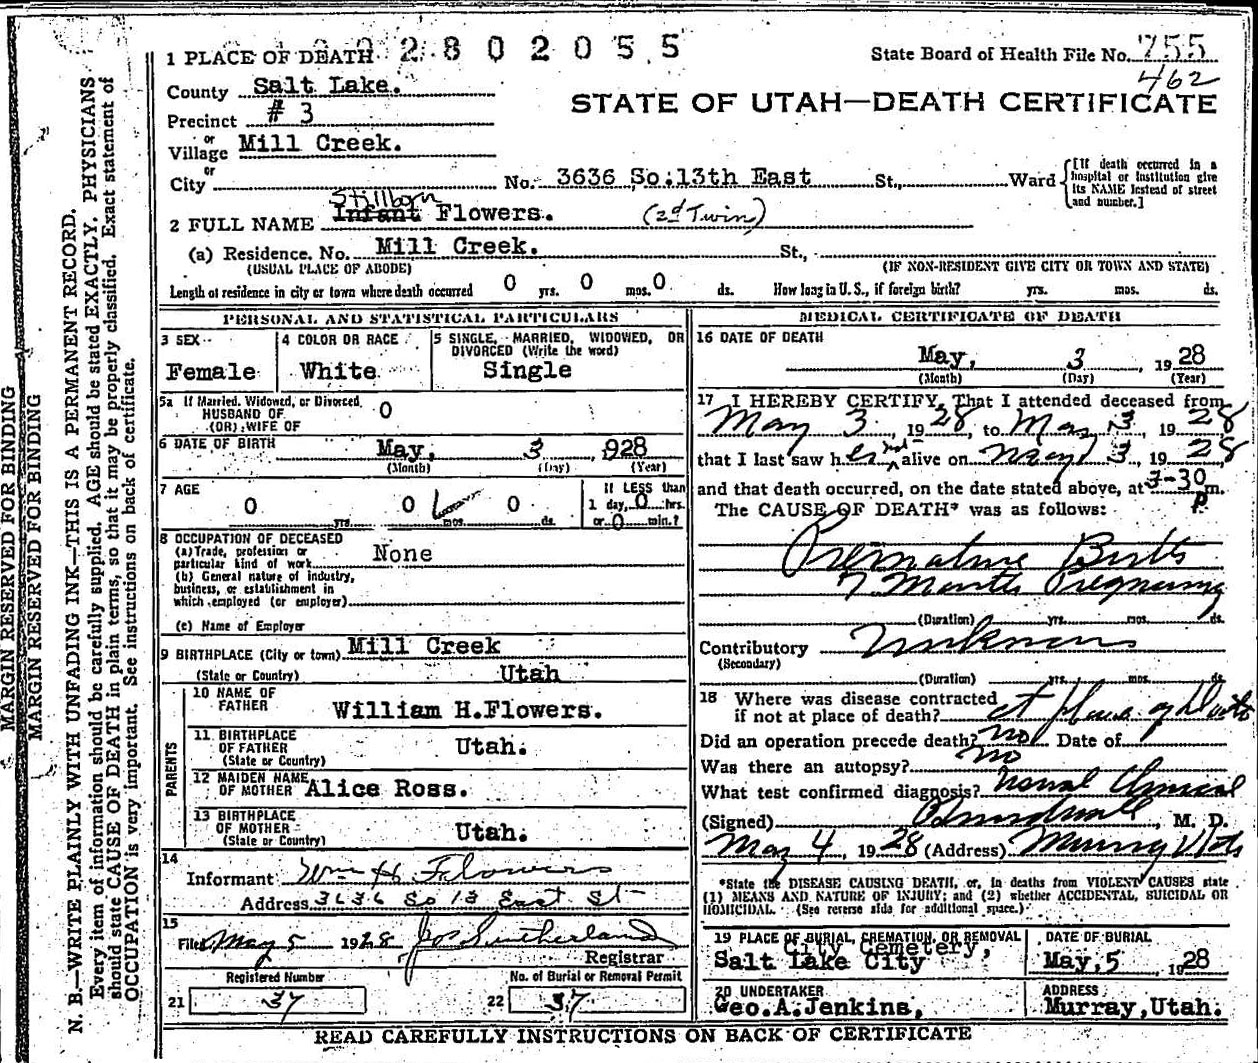 MARGIN RESERVED FOR BINDING
MARGIN RESERVED FOR BINDING
N. B.—WRITE PLAINLY WITH UNFADING INK—THIS IS A PERMANENT RECORD.
Every item of information should be carefully supplied. AGE should be stated EXACTLY. PHYSICIANS
should state CAUSE OF DEATH in plain terms, so that it may be properly classified. Exact statement of
OCCUPATION is very important. See instructions on back of certificate.
2 8 0 2 0 5 5
1 PLACE OF DEATH
State Board of Health File No. 755
462
County Salt Lake.
STATE OF UTAH—DEATH CERTIFICATE
Precinct # 3
or
Village Mill Creek.
or
City No. 3636 So. 13th East St., Ward
[If death occurred in a
hospital or institution give
its NAME instead of street
and number.]
Stillborn
2 FULL NAME Infant Flowers. (2d Twin)
(a) Residence. No. Mill Creek. St.,
(USUAL PLACE OF ABODE) (IF NON-RESIDENT GIVE CITY OR TOWN AND STATE)
Length of residence in city or town where death occurred 0 yrs. 0 mos. 0 ds. How long in U. S., if foreign birth? yrs. mos. ds.
PERSONAL AND STATISTICAL PARTICULARS
3 SEX
Female
4 COLOR OR RACE
White
5 SINGLE, MARRIED, WIDOWED, OR
DIVORCED (Write the word)
Single
5a If Married, Widowed, or Divorced,
HUSBAND OF 0
(OR) WIFE OF
6 DATE OF BIRTH May, 3 928
(Month) (Day) (Year)
7 AGE
0 yrs. 0 mos. 0 ds.
If LESS than
1 day, 0 hrs.
or 0 min.?
8 OCCUPATION OF DECEASED
(a) Trade, profession or
particular kind of work None
(b) General nature of industry,
business, or establishment in
which employed (or employer)
(c) Name of Employer
9 BIRTHPLACE (City or town) Mill Creek
(State or Country) Utah
PARENTS
10 NAME OF
FATHER William H.Flowers.
11 BIRTHPLACE
OF FATHER Utah.
(State or Country)
12 MAIDEN NAME
OF MOTHER Alice Ross.
13 BIRTHPLACE
OF MOTHER Utah.
(State or Country)
14
Informant Wm H Flowers
Address 3636 So 13 East St
15
Filed May 5 1928 Jos Sutherland
Registrar
Registered Number
21 37
No. of Burial or Removal Permit
22 37
MEDICAL CERTIFICATE OF DEATH
16 DATE OF DEATH
May, 3, 1928
(Month) (Day) (Year)
17 I HEREBY CERTIFY, That I attended deceased from
May 3, 1928, to May 3, 1928
that I last saw her not alive on May 3, 1928
and that death occurred, on the date stated above, at 3-30 P m.
The CAUSE OF DEATH* was as follows:
Premature Birth
7 Months Pregnancy
(Duration) yrs. mos. ds.
Contributory Unknown
(Secondary)
(Duration) yrs. mos. ds.
18 Where was disease contracted
if not at place of death? at place of death
Did an operation precede death? no Date of
Was there an autopsy? no
What test confirmed diagnosis? Clinical
(Signed) , M. D.
May 4, 1928 (Address) Murray Utah
*State the DISEASE CAUSING DEATH, or, in deaths from VIOLENT CAUSES state
(1) MEANS AND NATURE OF INJURY; and (2) whether ACCIDENTAL, SUICIDAL OR
HOMICIDAL. (See reverse side for additional space.)
19 PLACE OF BURIAL, CREMATION, OR REMOVAL
City Cemetery,
Salt Lake City
DATE OF BURIAL
May, 5 1928
20 UNDERTAKER
Geo.A.Jenkins,
ADDRESS
Murray,Utah.
READ CAREFULLY INSTRUCTIONS ON BACK OF CERTIFICATE